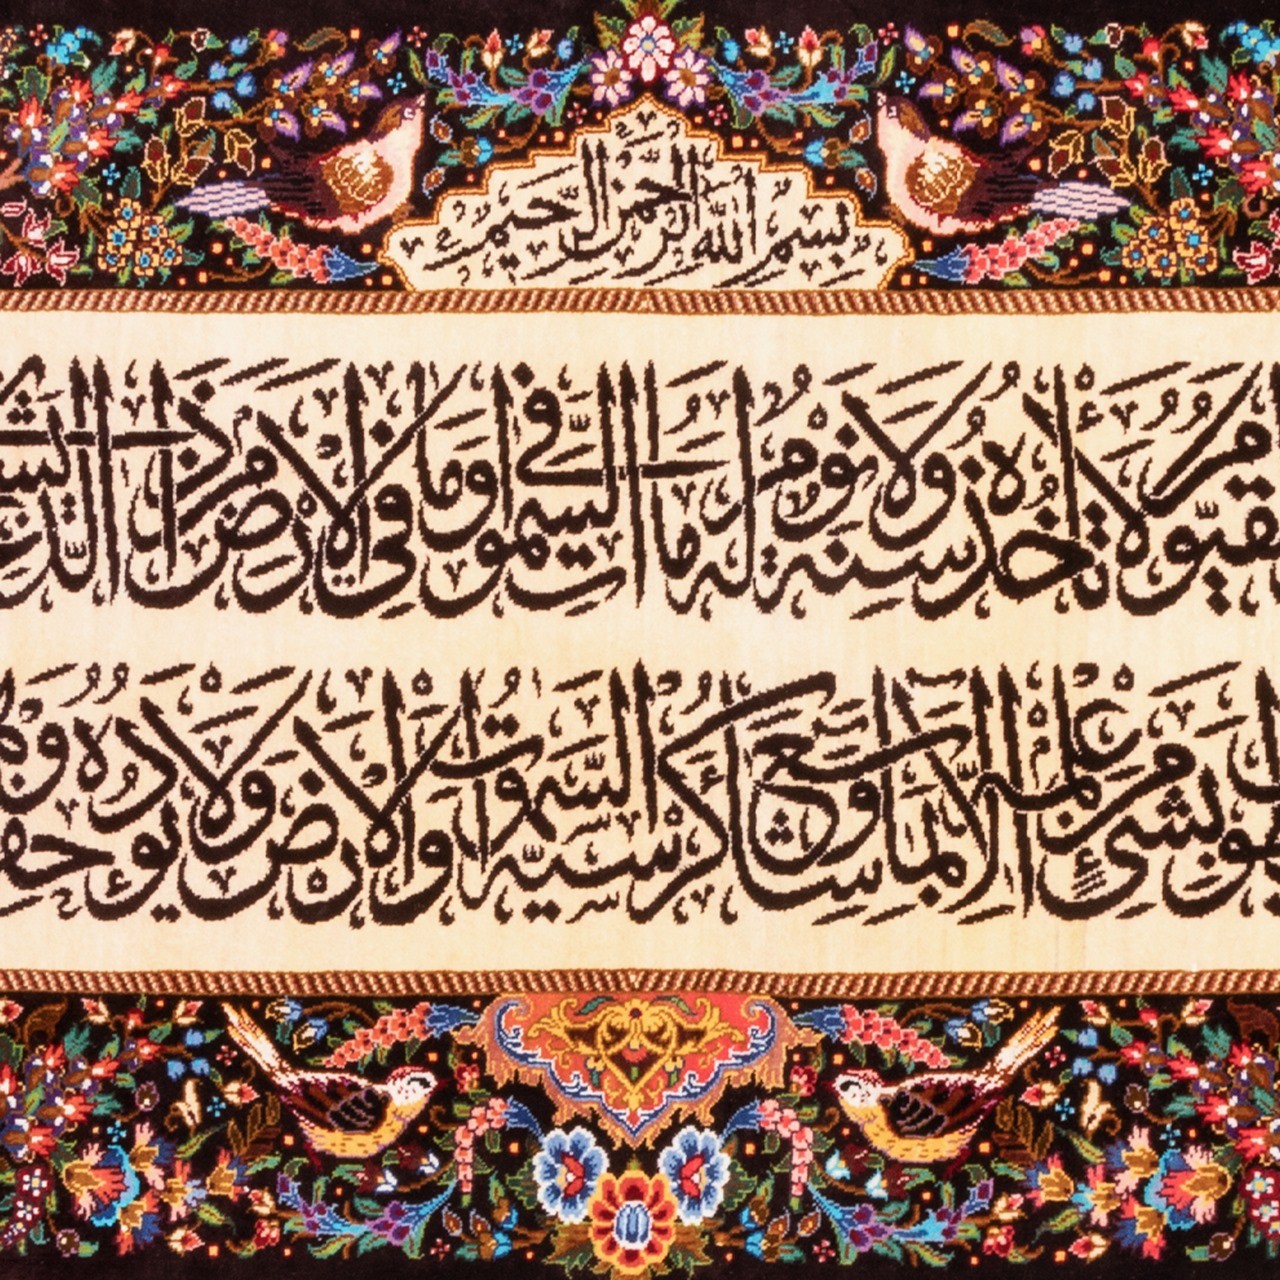 بِسْمِ اللَّهِ الرَّحْمٰنِ الرَّحِيمِ
لَا تَأْخُذُهُ سِنَةٌ وَلَا نَوْمٌ لَهُ مَا فِي السَّمٰوَاتِ وَمَا فِي الْأَرْضِ مَنْ ذَا الَّذِي
بِشَيْءٍ مِنْ عِلْمِهِ إِلَّا بِمَا شَاءَ وَسِعَ كُرْسِيُّهُ السَّمٰوَاتِ وَالْأَرْضَ وَلَا يَؤُدُهُ